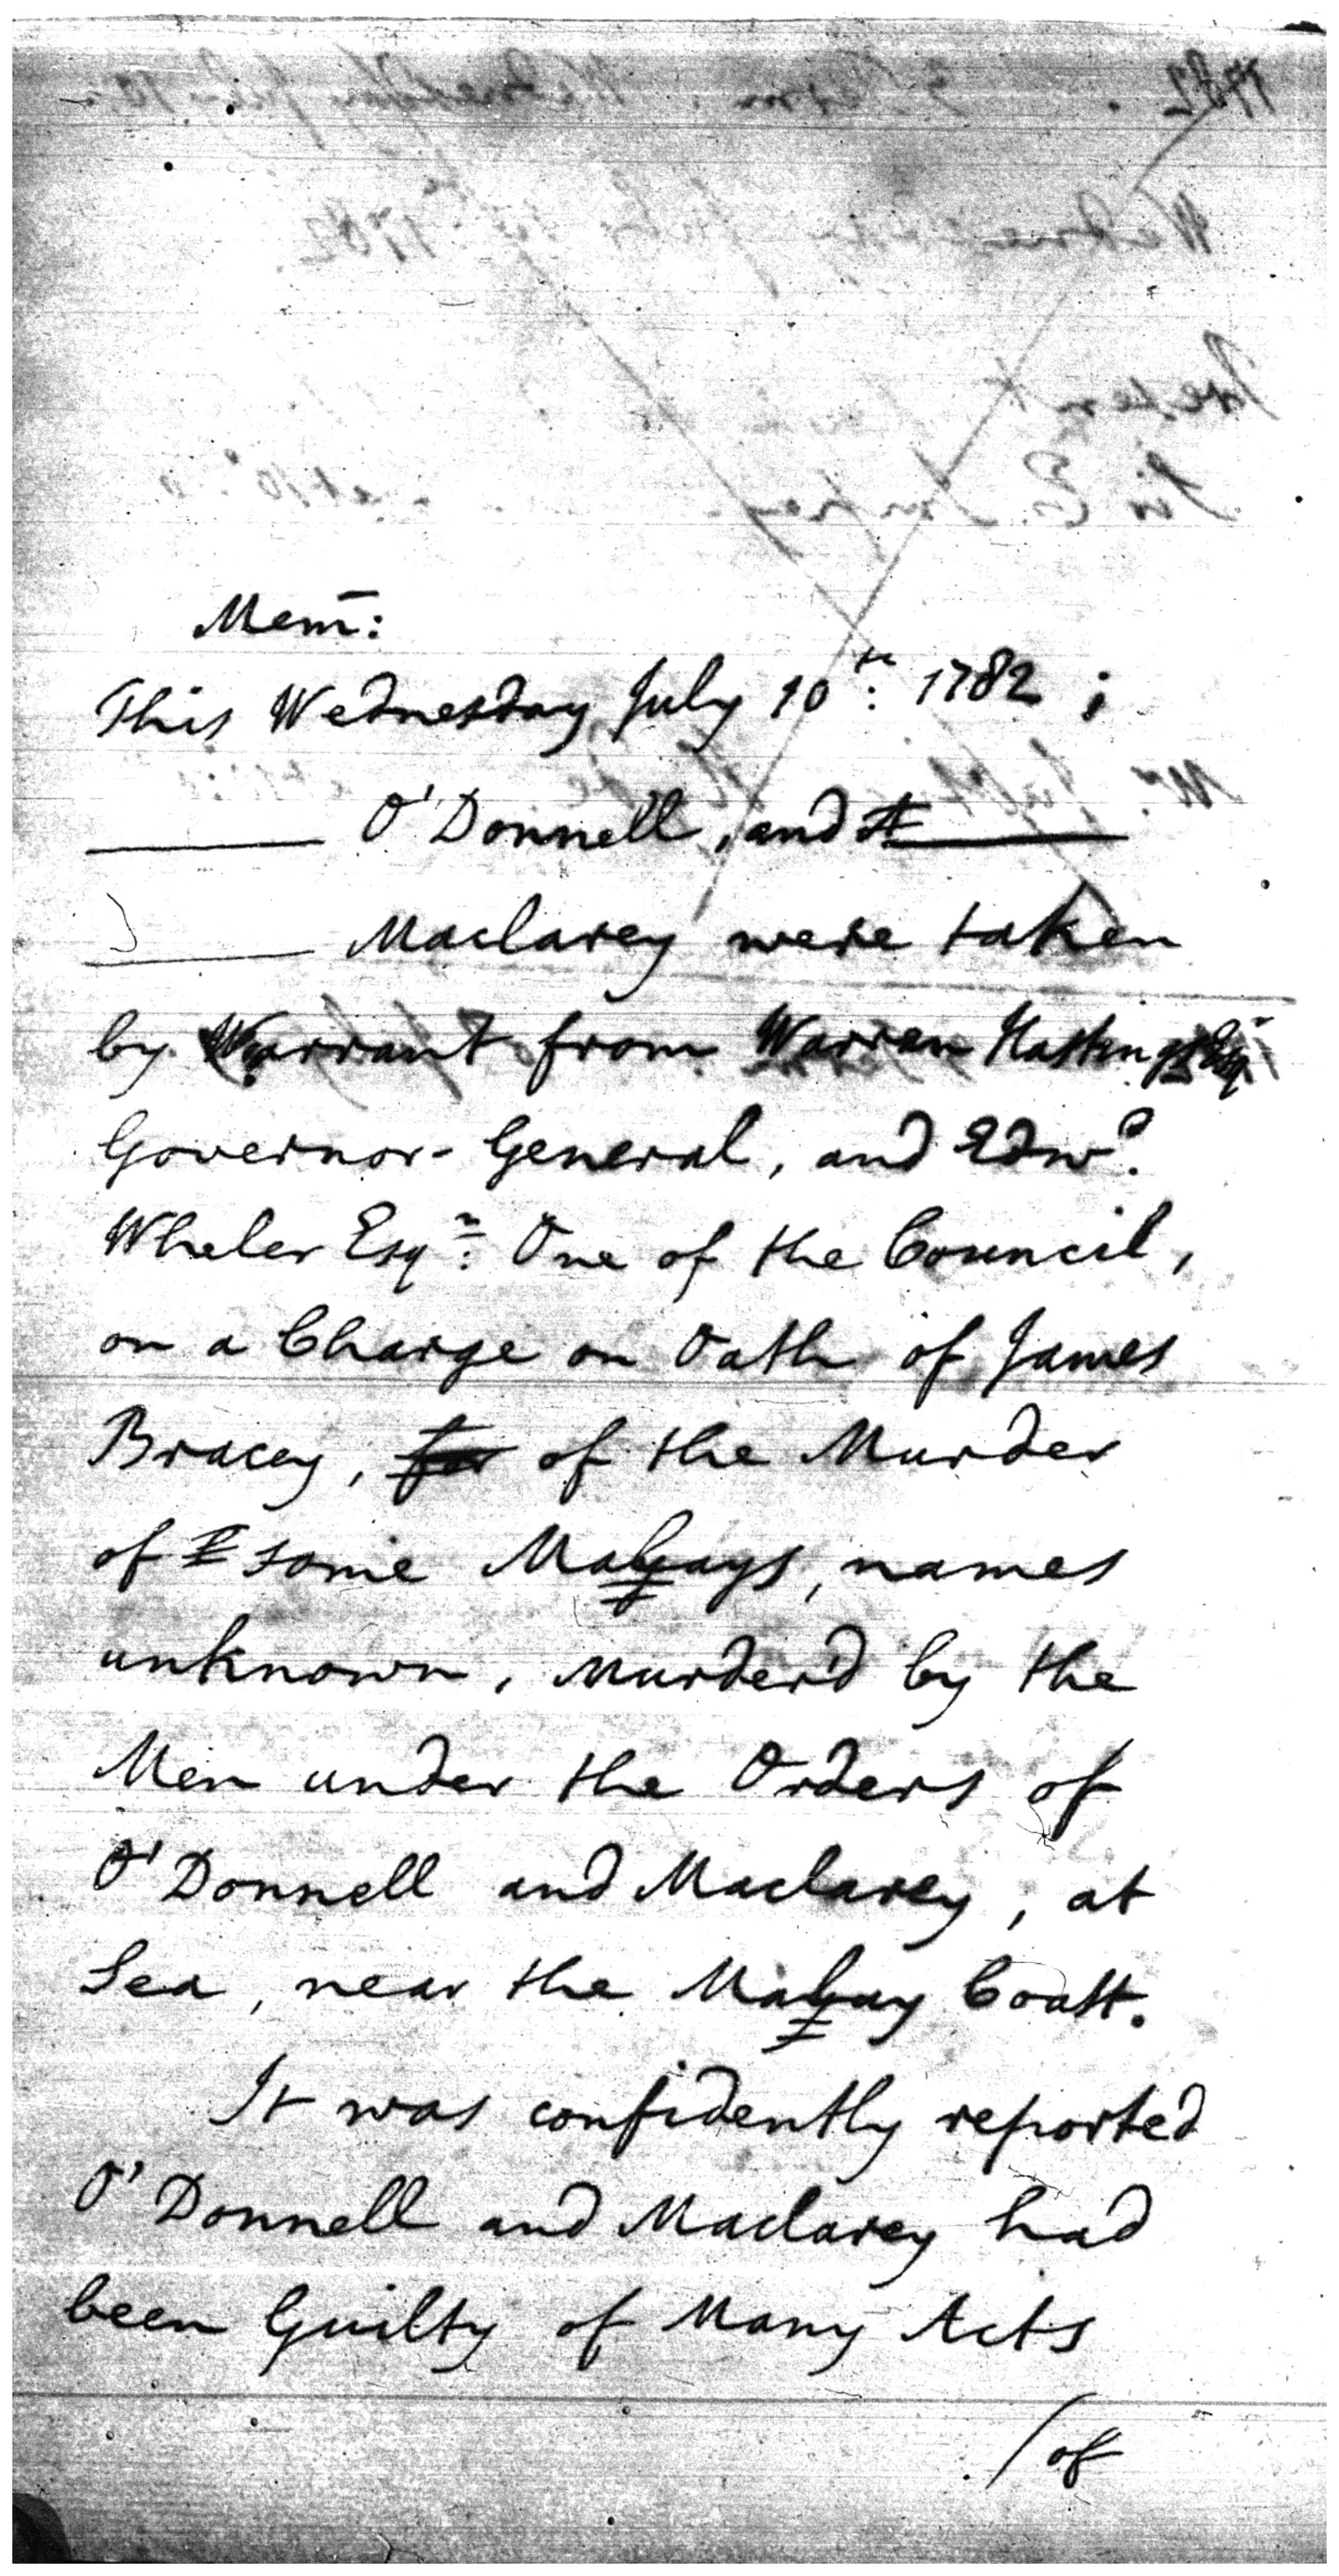 Mem̄:
This Wednesday July 10th: 1782;
O'Donnell, and
Maclarey were taken
by Warrant from Warren Hastings Esqr
Governor-General, and Edwd:
Wheler Esqr: One of the Council,
on a Charge on Oath of James
Bracey, for of the Murder
of some Malays, names
unknown, Murder'd by the
Men under the Orders of
O'Donnell and Maclarey, at
Sea, near the Malay Coast.
It was confidently reported
O'Donnell and Maclarey had
been Guilty of Many Acts
/of